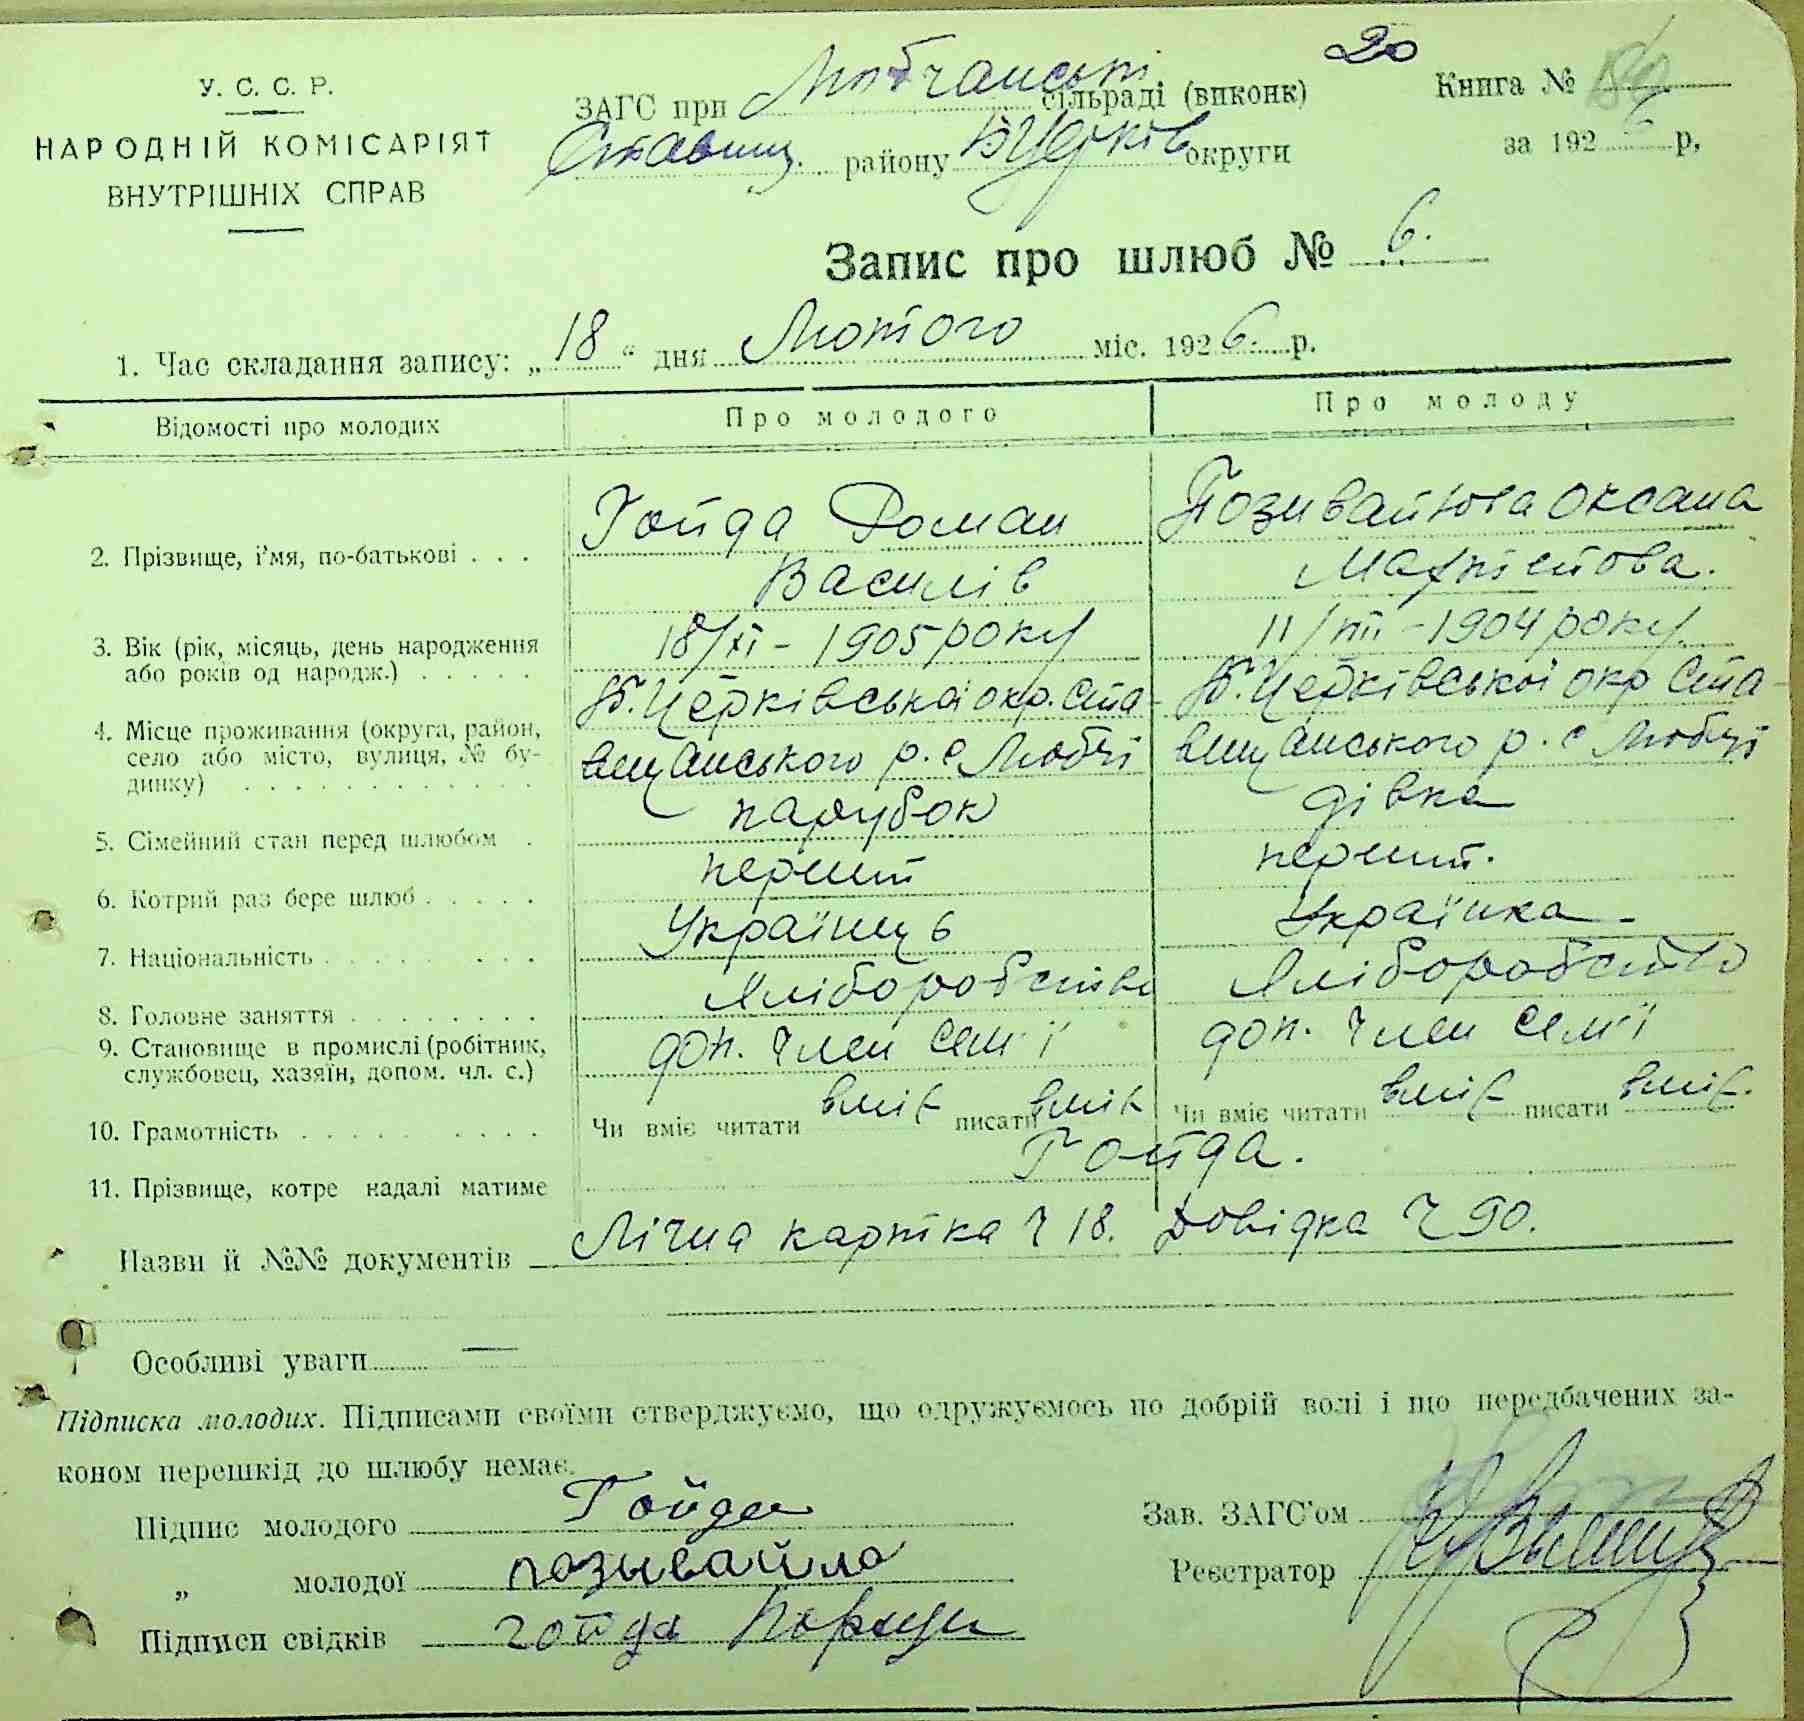 У. С. С. Р.
НАРОДНІЙ КОМІСАРІЯТ
ВНУТРІШНІХ СПРАВ
20
ЗАГС при Любчанській сільраді (виконк)
Ставищ. району БЦерків округи
Книга №
за 1926 р,
Запис про шлюб № 6.
1. Час складання запису: „18“ дня Лютого міс. 1926. р.
Відомості про молодих Про молодого Про молоду
2. Прізвище, і'мя, по-батькові . . . Гойда Роман Василів Позивайлова Оксана
3. Вік (рік, місяць, день народження або років од народж.) . . . . . 18/XI - 1905 року 11/VIII - 1904 року
4. Місце проживання (округа, район, село або місто, вулиця, № будинку) . . . . . . . . . . . . Б. Церківської окр. Ставищанського р. с Любчі Б. Церківської окр Ставищанського р. с Любчі
5. Сімейний стан перед шлюбом . парубок дівка
6. Котрий раз бере шлюб . . . . . перший перший.
7. Національність . . . . . . . . Українець Українка
8. Головне заняття . . . . . . . . Хліборобство Хліборобство
9. Становище в промислі (робітник, службовец, хазяїн, допом. чл. с.) доп. член сем'ї доп. член сем'ї
10. Грамотність . . . . . . . . . . Чи вміє читати вміє писати вміє Чи вміє читати вміє писати вміє.
11. Прізвище, котре надалі матиме Гойда.
Назви й №№ документів Лічна картка Ч 18. Довідка Ч 90.
Особливі уваги —
Підписка молодих. Підписами своїми стверджуємо, що одружуємось по добрій волі і що передбачених за-
коном перешкід до шлюбу немає.
Підпис молодого Гойда
„ молодої позывайло
Підписи свідків гойда
Зав. ЗАГС'ом
Реєстратор